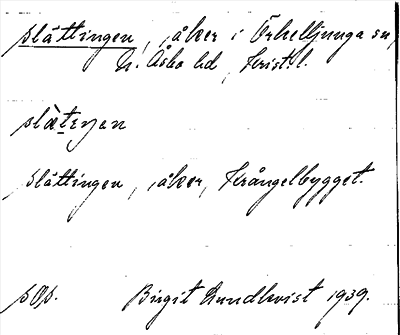 slättingen, åker i Örkelljunga sn,
N. Åsbo hd, Krist. l.
slätεŋən
slättingen, åker, Krångelbygget.
pop. Birgit Lundkvist 1939.